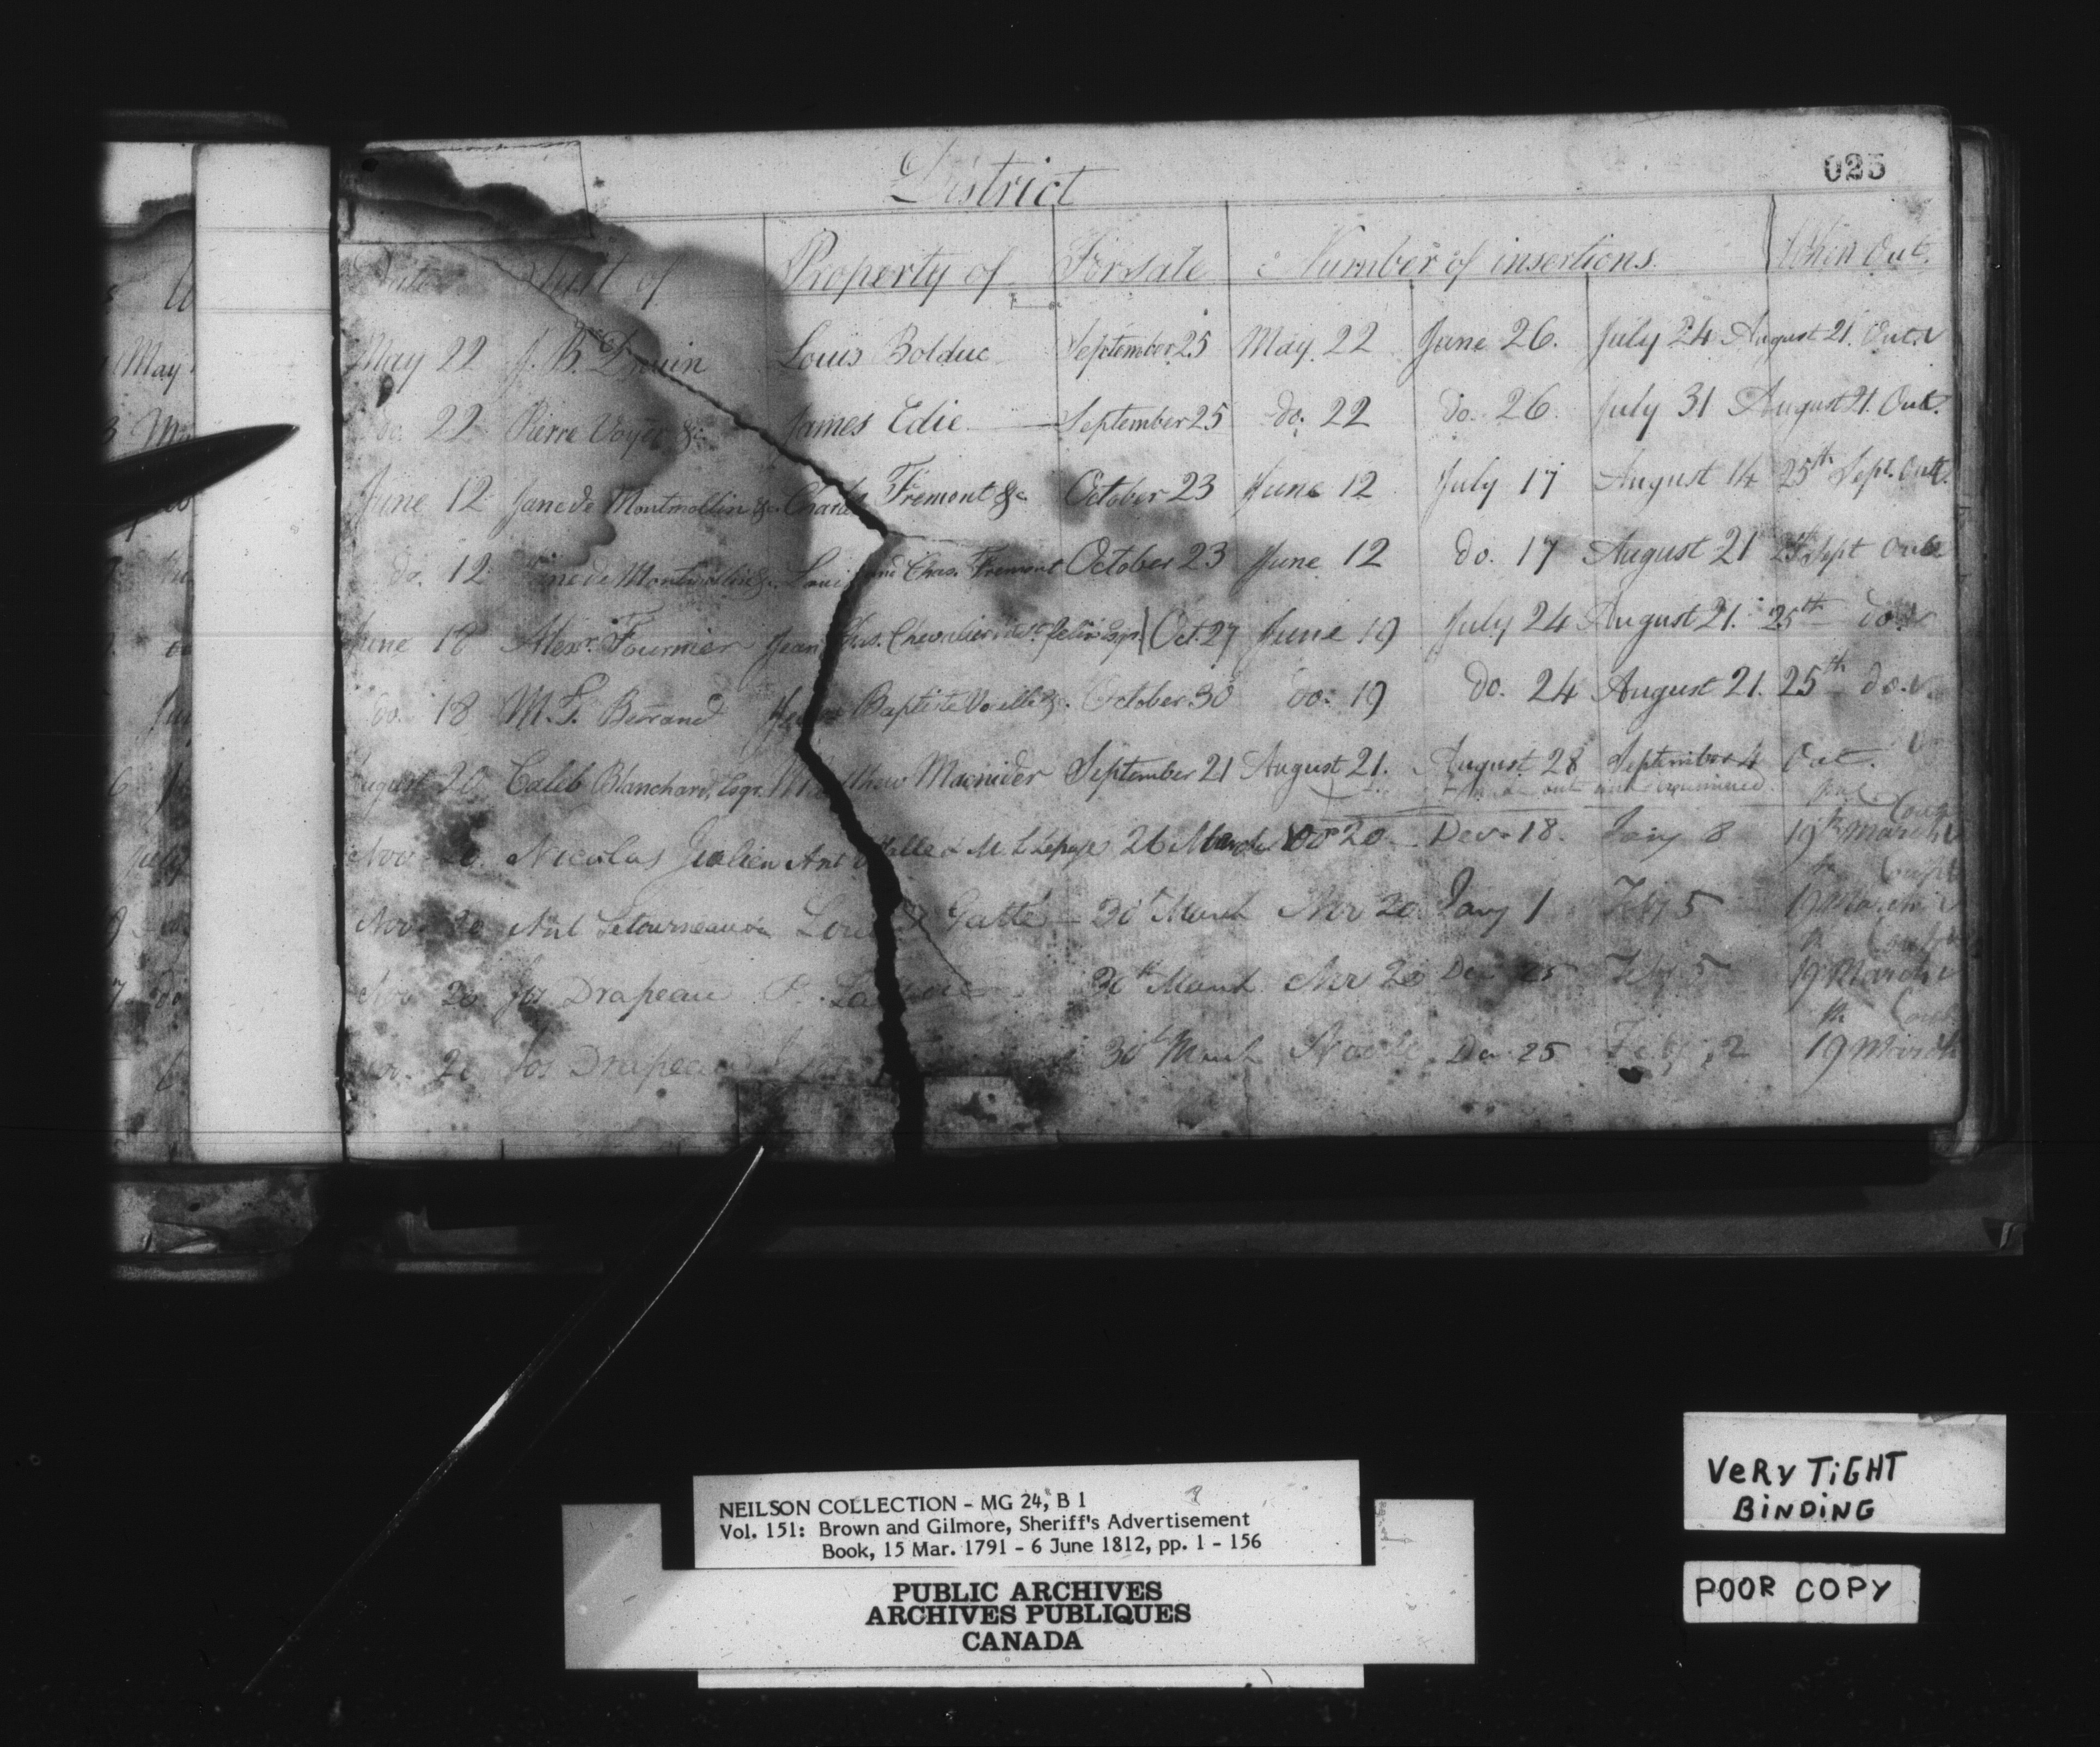 025
District
Date Suit of Property of For Sale Number of insertions. When Out.
May 22 J. B. Drouin Louis Bolduc September 25 May 22 June 26. July 24 August 21. Out.
do. 22 Pierre Voyer &c. James Edie September 25 do. 22 do. 26. July 31 August 21. Out.
June 12 Jane de Montmollin &c. Charles Fremont &c October 23 June 12 July 17 August 14 25th Sept. Out.
do. 12 Jane de Montmollin &c. Louis and Chas. Fremont October 23 June 12 do. 17 August 21 25th Sept Out
June 18 Alexr. Fournier Jean Chs. Chevalier Oct. 27 June 19 July 24 August 21. 25th do.
do. 18 M. L. Berrand Baptiste October 30 do. 19 do. 24 August 21. 25th do.
August 20 Caleb Blanchard, Esqr. Matthew Macnider September 21 August 21. August 28 September 4 Out.
Nov. 20. Nicolas Julien Ant & M. L. Lepage 26 March 20 Decr 18. Jany 8 19th March
Nov. 20 Ant Letourneau Louis Gatté 30t March Nov 20 Jany 1 Feby 5 19 March
Nov 20 Jos Drapeau 30th March Nov 20 Dec 25 Feby 5 19 March
Nov. 20 Jos Drapeau 30t March Dec 25 Feby 19 March
VERY TIGHT
BINDING
POOR COPY
NEILSON COLLECTION - MG 24, B 1
Vol. 151: Brown and Gilmore, Sheriff's Advertisement
Book, 15 Mar. 1791 - 6 June 1812, pp. 1 - 156
PUBLIC ARCHIVES
ARCHIVES PUBLIQUES
CANADA